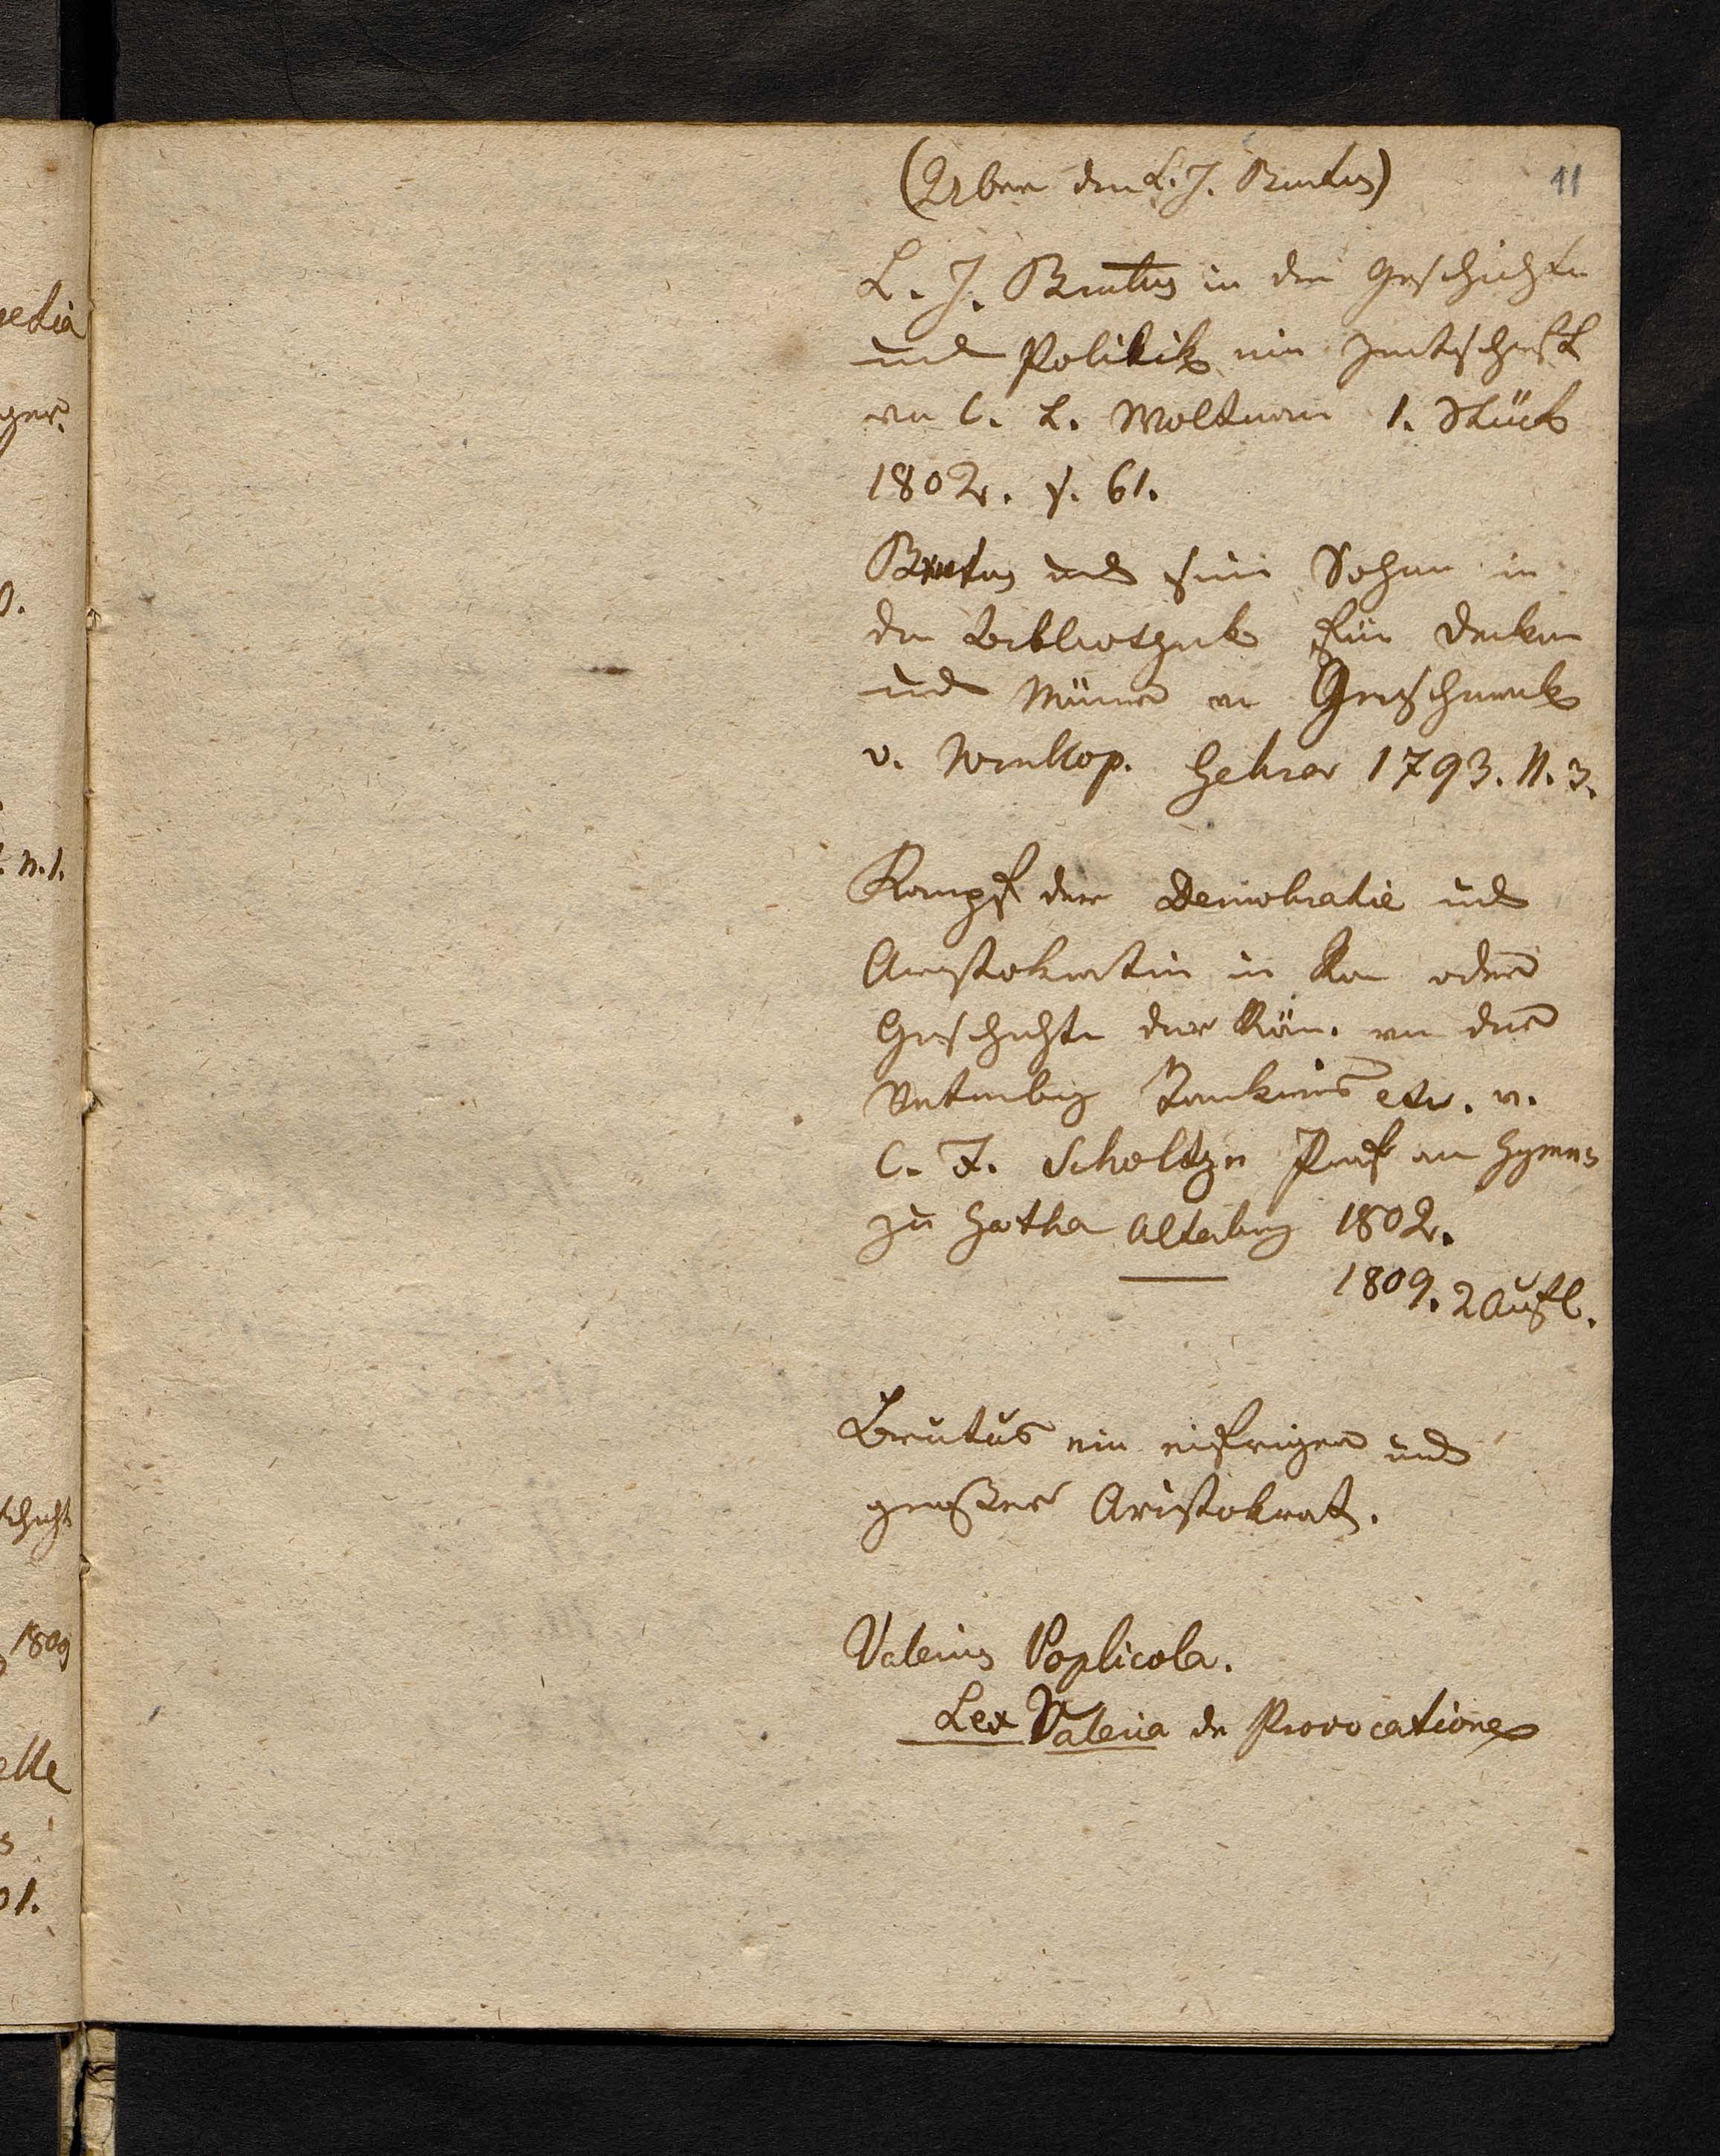 (Über den L. J. Brutus)
11
L. J. Brutus in der Geschichte
und Politik eine Zeitschrift
von C. L. Woltmann 1. Stück
1802. s. 61.
Brutus und seine Sohne in
der Bibliothek für Denker
und Männer von Geschmack
v. Winkop. Gehrer 1793. N. 3.
Kampf der Demokratie und
Aristokratie in Rom oder
Geschichte der Röm. von der
Vertreibung Tarkins etc. v.
C. F. Scholtze Prof am Gymnas
zu Gotha Altenburg 1802.
1809. 2 Aufl.
Brutus ein eifriger und
großer Aristokrat.
Valerius Poplicola.
Lex Valeria de Provocatione
edia
ger.
0.
n. 1.
1809
elle
s
01.